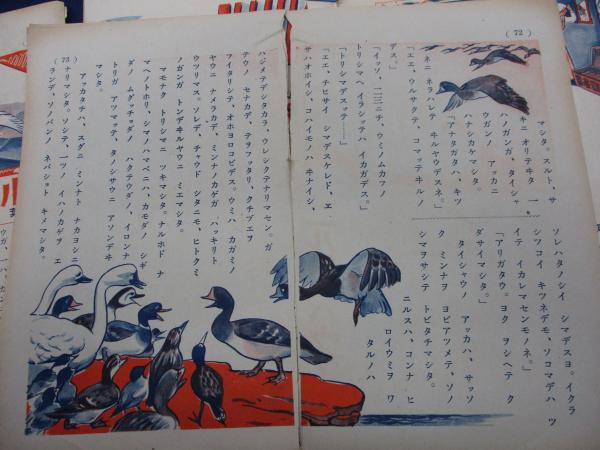 (72)
マシタ。スルト、サ
キニ オリテキタ 一、
ハノガンガ、タイシャ
ウガンノ アッカニ
ハナシカケマシタ。
「アナタガタハ、キツ
ネニ ネラハレテ ヰルヤウデスネ。」
「エエ、ウルサクテ、コマッテヰルノ
デス。」
「イッソ、一二三ニチ、ウミノムカフノ
トリシマヘ イラシッテハ イカガデス。」
「トリシマデスッテ――」
「エエ、チヒサイ シマデスケレド、エ
サハオホイシ、コハイモノハ ヰナイシ、
ソレハタノシイ シマデスヨ。イクラ
シツコイ キツネデモ、ソコマデハ ツ
イテ イカレマセンモノネ。」
「アリガタウ。ヨク ヲシヘテ ク
ダサイマシタ。」
タイシャウノ アッカハ、サッソ
ク ミンナヲ ヨビアツメテ、ソノ
シマヲサシテ トビタチマシタ。
ニルスハ、コンナ ヒ
ロイウミヲ ワ
タルノハ
(73)
ハジメテデシタカラ、ウレシクテナリマセン。ガ
テウノ セナカデ、テヲフッタリ、クチブエヲ
フイタリシテ、オホヨロコビデス。ウミハ カガミノ
ヤウニ ナメラカデ、ミンナノカゲガ ハッキリト
ウツリマス。ソレデ、チャウド シタニモ、ヒトクミ
ノガンガ トンデヰルヤウニ ミエマシタ。
マモナク トリシマニ ツキマシタ。ナルホド ナ
マヘノトホリ、シマノハマベニハ、カモダノ シギ
ダノ ムグッチョダノ ハクテウダノ、イロンナ
トリガ アツマッテ、タノシサウニ アソンデヰ
マシタ。
アッカタチハ、スグニ ミンナト ナカヨシニ
ナリマシタ。ソシテ、一ツノ イハノカゲヲ エ
ランデ、ソノバンノ ネバショト キメマシタ。